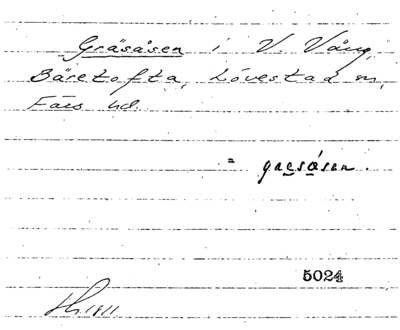 Gräsåsen i V. Vång,
Bäretofta, Lövestad sn,
Färs hd.
= græsåsen.
5024
1811